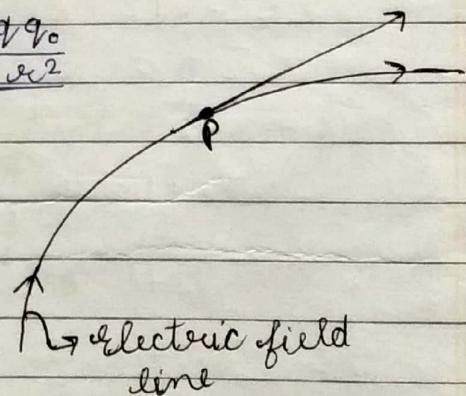 qq₀
r²
P
Electric field
line